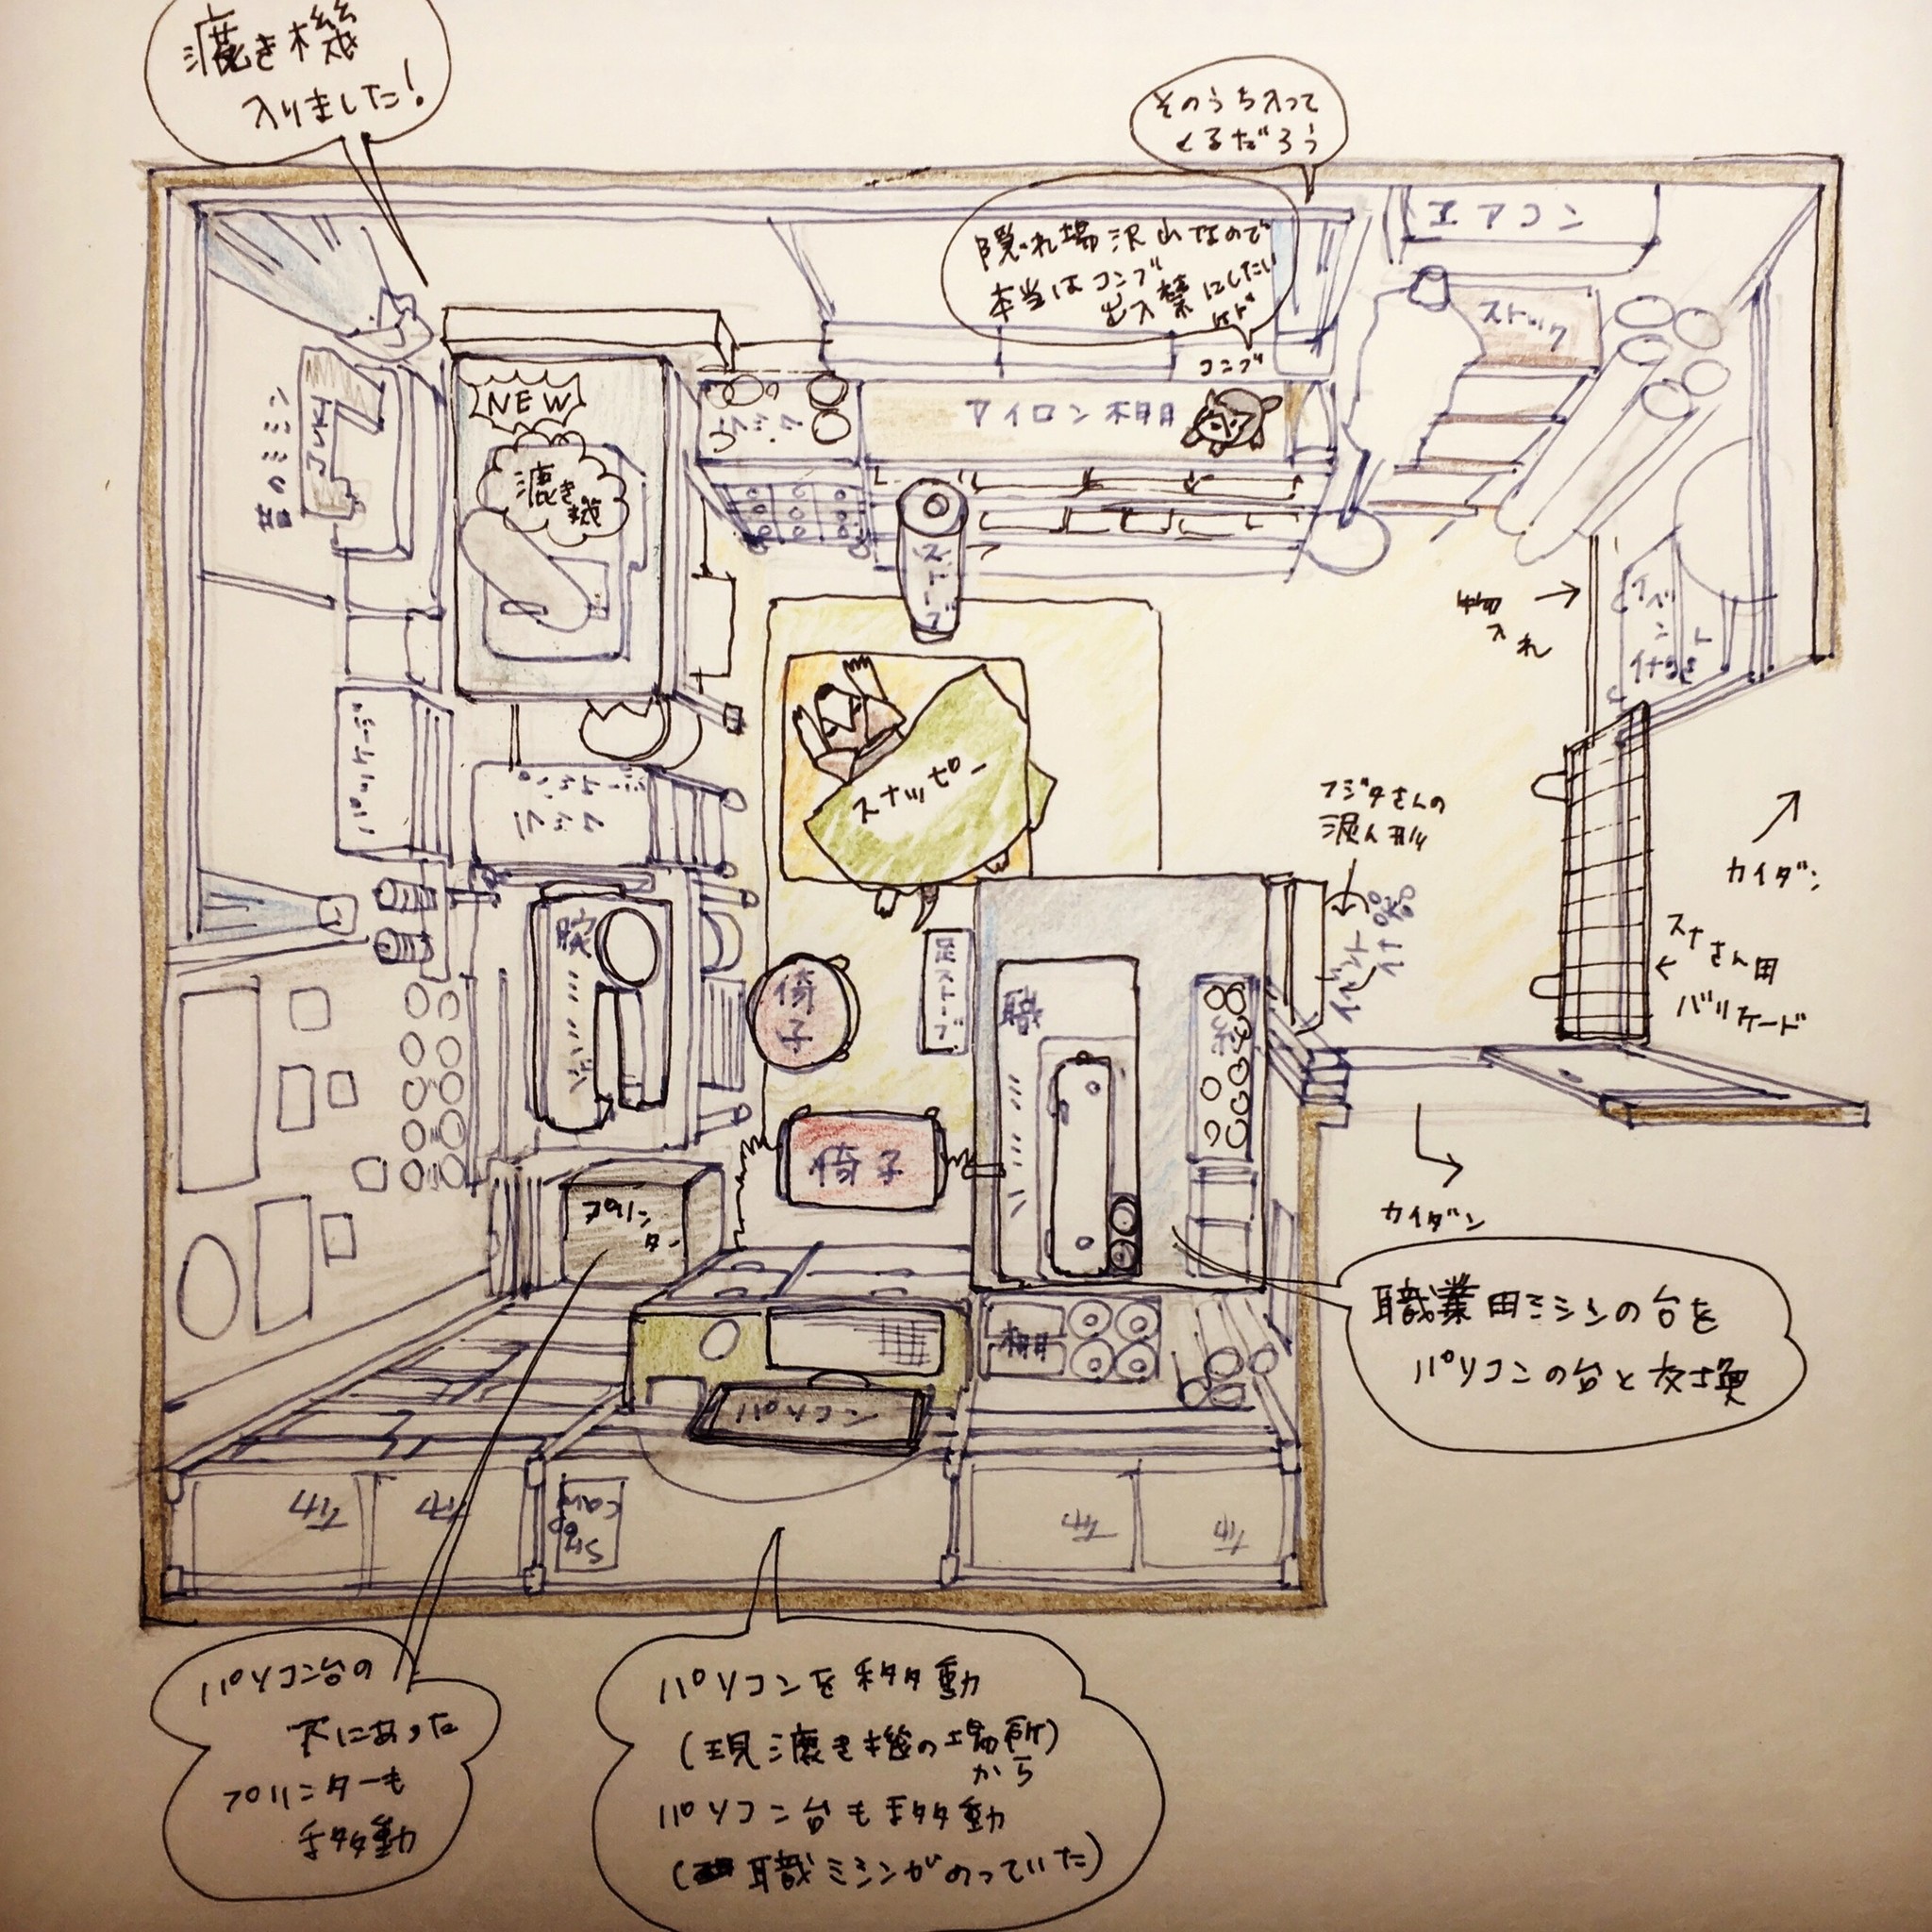 漉き機
入りました!
そのうち入って
くるだろう
隠れ場沢山なので
本当はコンブ
出入禁にしたい
けど
エアコン
ストック
コンブ
アイロン棚
NEW
漉き機
昔のミシン
JUKI
ストーブ
スナッピー
入れ
イベント
フジタさんの
カイダン
スナさん用
バリケード
イベント
腕ミシン
椅子
足ストーブ
職ミシン
糸
椅子
プリンター
カイダン
職業用ミシンの台を
パソコンの台と交換
棚
パソコン
パソコン台の
下にあった
プリンターも
移動
パソコンを移動
(現漉き機の場所)
から
パソコン台も移動
(職ミシンがのっていた)